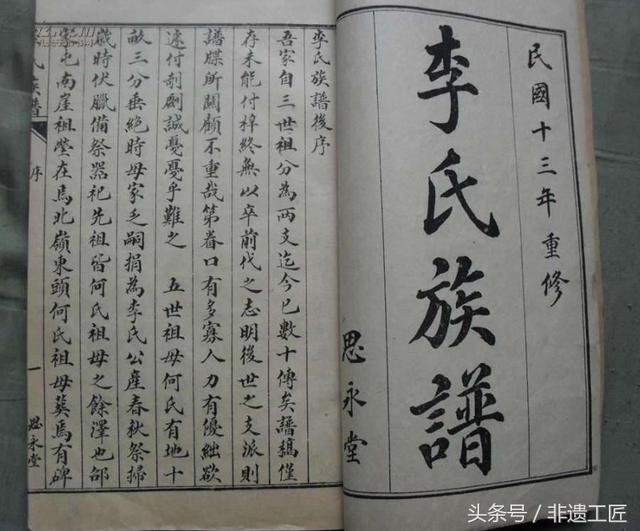 民國十三年重修
李氏族譜
思永堂
李氏族譜後序
吾家自三世祖分為兩支迄今已數十傳矣譜稿僅
存未能付梓終無以卒前代之志明後世之支派則
譜牒所關顧不重哉第眷口有多寡人力有優絀欲
速付剞劂誠戞戞乎難之 五世祖母何氏有地十
畝三分垂絕時母家乏嗣捐為李氏公產春秋祭掃
歲時伏臘備祭器祀先祖皆何氏祖母之餘澤也部
屯南崖祖塋在焉北嶺東頭何氏祖母葬焉有碑
氏族譜
序
一
思永堂
头条号 / 非遗工匠